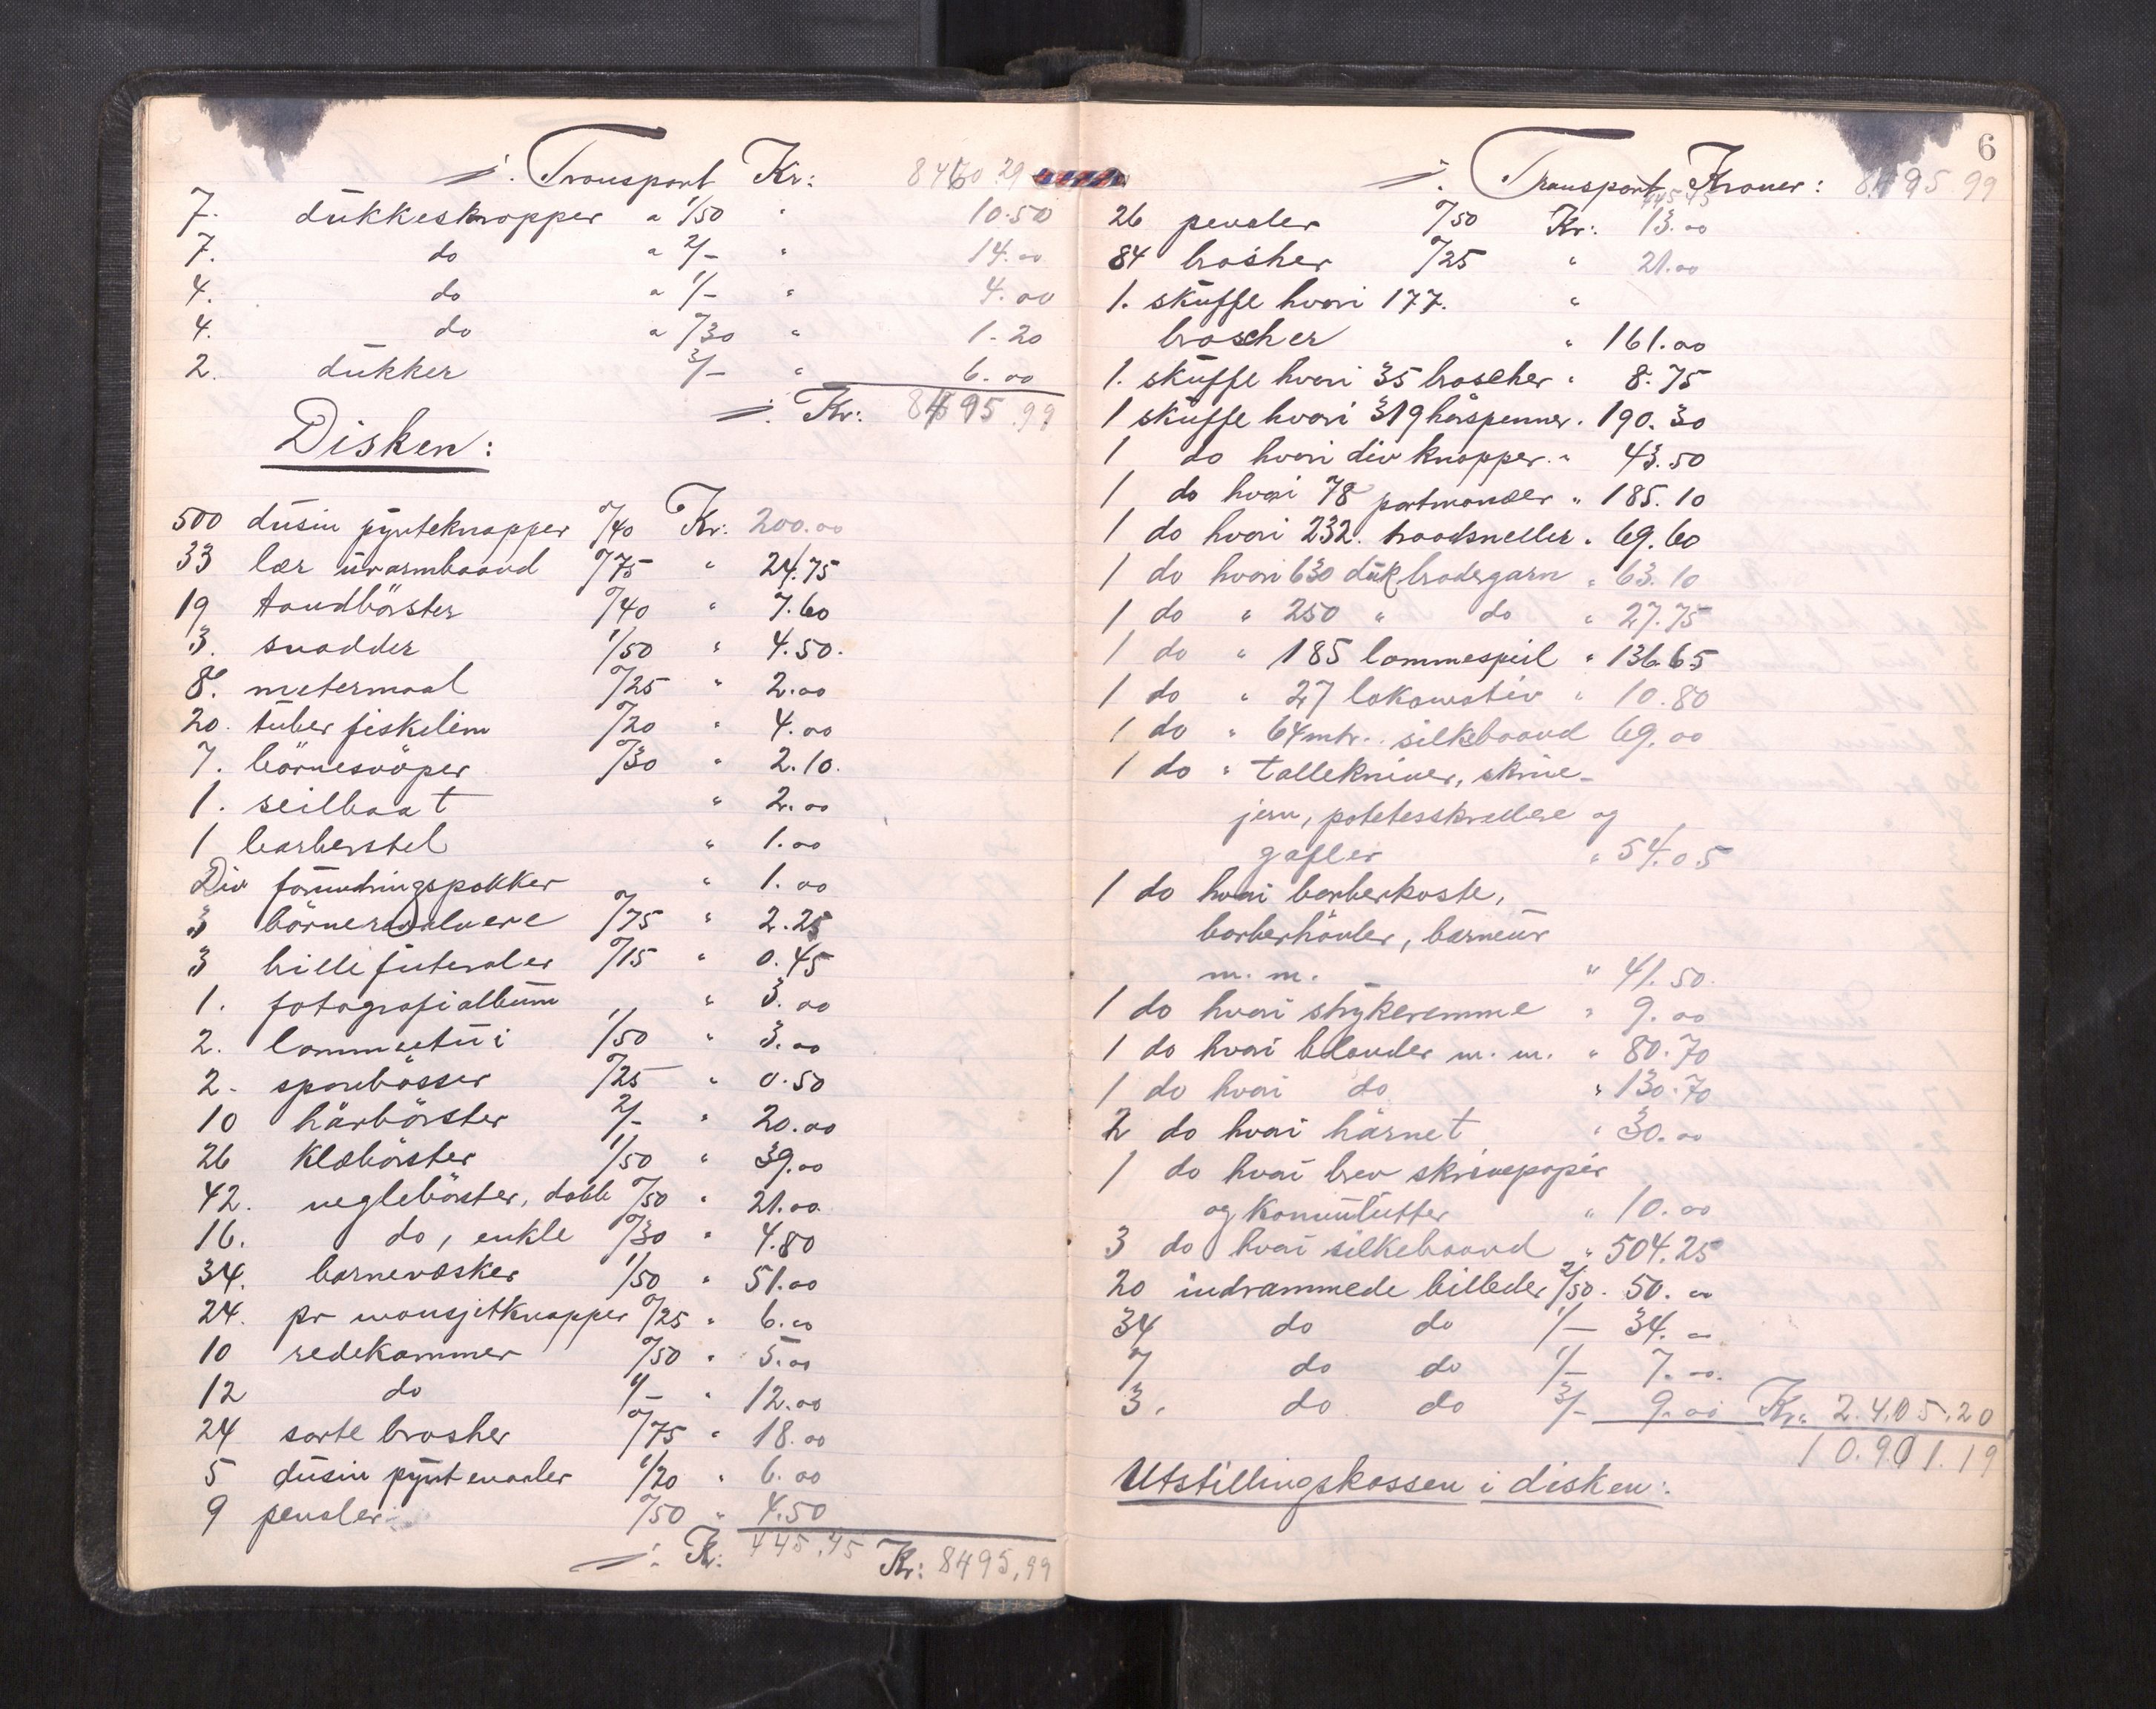 ÷. Transport Kr: 8460.29
7. dukkeskropper a 1/50 " 10.50
7. do " 2/- " 14.00
4. do " 1/- " 4.00
4. do " 0/30 " 1.20
2. dukker 3/- " 6.00
÷. Kr: 8495.99
Disken:
500 dusin pynteknapper 0/40 Kr: 200.00
33 lær urarmbaand 0/75 " 24.75
19 tandbörster 0/40 " 7.60
3. snadder 1/50 " 4.50.
8. metermaal 0/25 " 2.00
20. tuber fiskelim 0/20 " 4.00
7. börnesvöper 0/30 " 2.10.
1. seilbaat " 2.00
1 barberstel " 1.00
Div forundringspakker " 1.00
3 börnerevolvere 0/75 " 2.25
3 brillefuteraler 0/15 " 0.45
1. fotografialbum " 3.00
2. lommeetui 1/50 " 3.00
2. sparebösser 0/25 " 0.50
10 hårbörster 2/- " 20.00
26 klæbörster 1/50 " 39.00
42. neglebörster, doble 0/50 " 21.00
16. do, enkle 0/30 " 4.80
34. barnevæsker 1/50 " 51.00
24. pr mansjetknapper 0/25 " 6.00
10 redekammer 0/50 " 5.00
12 do 1/- " 12.00
24 sorte brosher 0/75 " 18.00
5 dusin pyntenaaler 1/20 " 6.00
9 pensler 0/50 " 4.50
÷. Kr: 445.45 Kr: 8495,99
6
÷. Transport Kroner: 8495 99
445.45
26 pensler 0/50 Kr: 13.00
84 brosher 0/25 " 21.00
1. skuffe hvori 177. "
broscher " 161.00
1. skuffe hvori 35 broscher " 8.75
1 skuffe hvori 319 hårspenner. 190.30
1 do hvori div knapper. " 43.50
1 do hvori 78 portmonæer " 185.10
1 do hvori 232. traadsneller " 69.60
1 do hvori 630 duk brodergarn " 63.10
1 do " 250 " do " 27.75
1 do " 185 lommespeil " 136.65
1 do " 27 lokomotiv " 10.80
1 do " 64 mtr. silkebaand 69.00
1 do " tallekniver, skrue-
jern, potetesskrellere og
gafler " 54.05
1 do hvori barberkoste,
barberhövler, barneur
m. m. " 41.50.
1 do hvori strykeremme " 9.00
1 do hvori blonder m. m. " 80.70
1 do hvori do " 130.70
2 do hvori hårnet " 30.00
1 do hvori brev skrivepapir
og konvulutter " 10.00
3 do hvori silkebaand " 504.25
20 indrammede billeder 2/50. 50.00
34 do do 1/- 34.00
7 do do 1/- 7.00.
3. do do 3/- 9.00 Kr. 2.405.20
10.901.19
Utstillingskassen i disken: